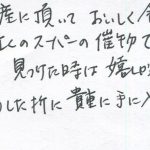 産に頂いて おいしく
くのスーパーの催物で
見つけた時は 嬉し
した折に 貴重に手に入